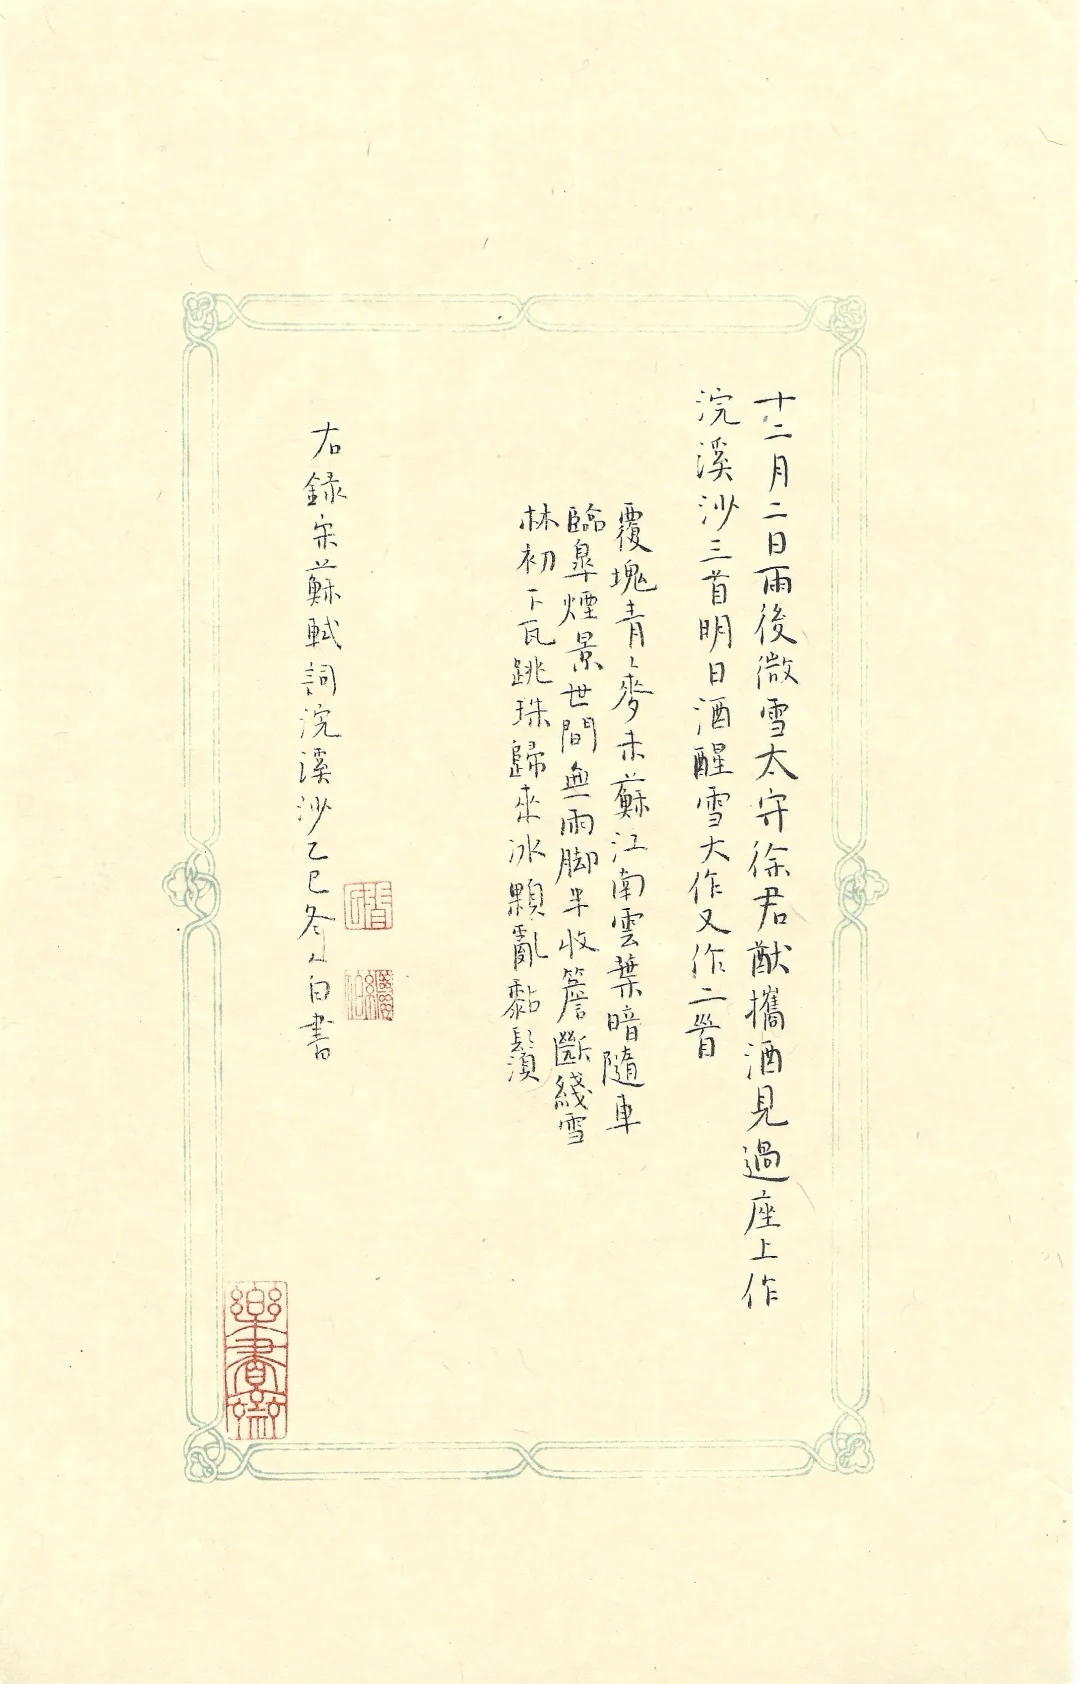 十二月二日雨後微雪太守徐君猷攜酒見過座上作
浣溪沙三首明日酒醒雪大作又作二首
覆塊青々麥未蘇江南雲葉暗隨車
臨皐煙景世間無雨脚半收簷斷綫雪
林初下瓦跳珠歸來冰顆亂黏鬚
右錄宋蘇軾詞浣溪沙乙巳冬人白書
樂書齋